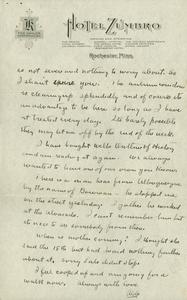 HOTEL ZUMBRO
Rochester, Minn.
so not severe and nothing to worry about. So
I shan't spare you. The antrum condition
is clearing up splendidly and of course it's
an advantage to be here so long as I have
it treated every day. It's barely possible
they may let me off by the end of the week.
I have bought Wells Outline of History
and am reading it again. We always
wanted it to and one of our own you know.
There is a man here from Albuquerque
by the name of Bowman. He stopped me
on the street yesterday. I gather he worked
at the Alvarado. I can't remember him but
it's nice to see somebody from there.
When is mother coming? I thought she
said the 15th but had heard nothing further
about it. Sorry Lalo didn't stop.
I feel cooped up and am going for a
walk now. Always with love